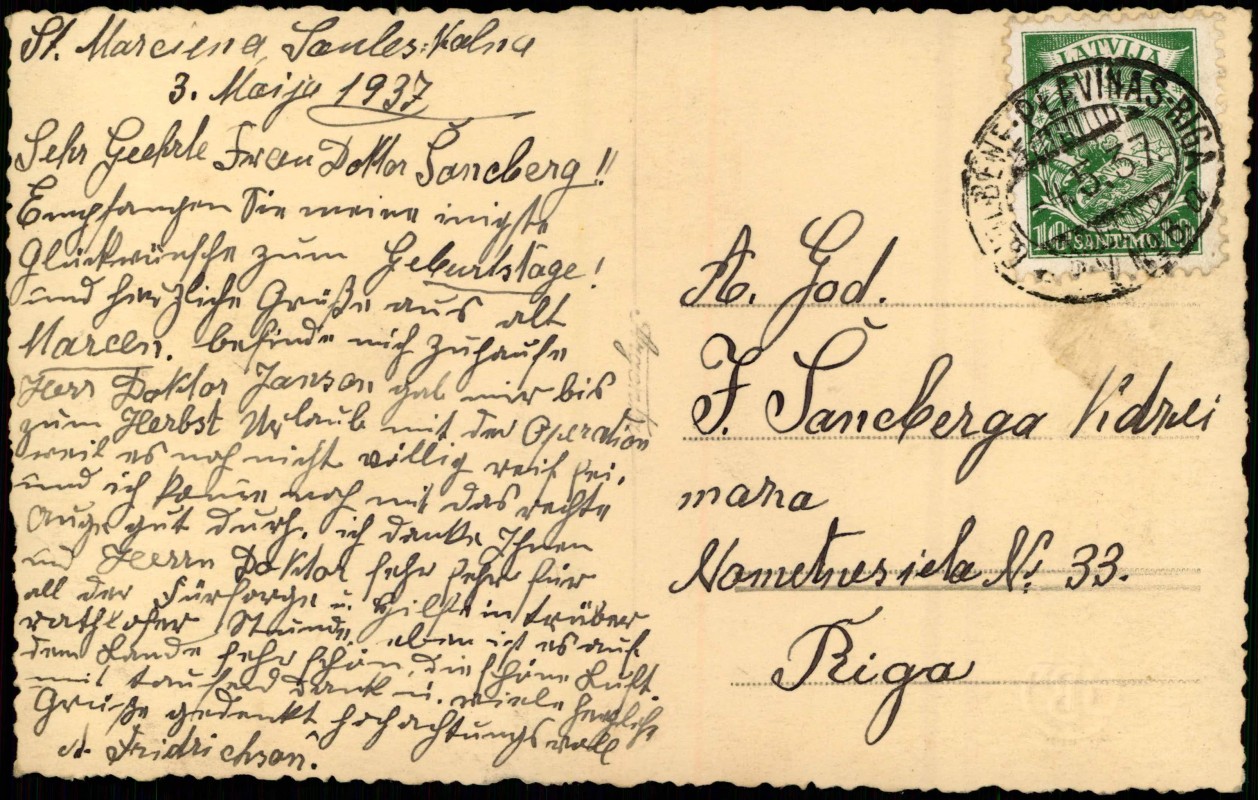 St. Marciena Saules-Kalna
3. Maija 1937
Sehr Geehrte Frau Doktor Šancberg!!
Empfangen Sie meine inigste
Glückwünsche zum Geburtstage!
und herzliche Grüße aus alt
Marcen. befinde mich zuhause
Herr Doktor Janson gab mir bis
zum Herbst Urlaub mit der Operation
weil es noch nicht völlig reif sei,
und ich kann noch mit das rechte
Auge gut durch. ich danke Ihnen
und Herrn Doktor sehr sehr für
all der Fürsorge u. Hilfe in trüber
rathloser Stunde, eben ist es auf
dem Lande sehr schön, die schöne Luft.
mit tausend Dank u. viele herzliche
Grüße gedenkt hochachtungsvoll
A. Fridrichson.
LATVIJA
10 SANTIMU 10
GULBENE-PĻAVIŅAS-RIGA
5.37.
A. God.
F. Šancberga Kidzei
Nometnes iela № 33.
Riga